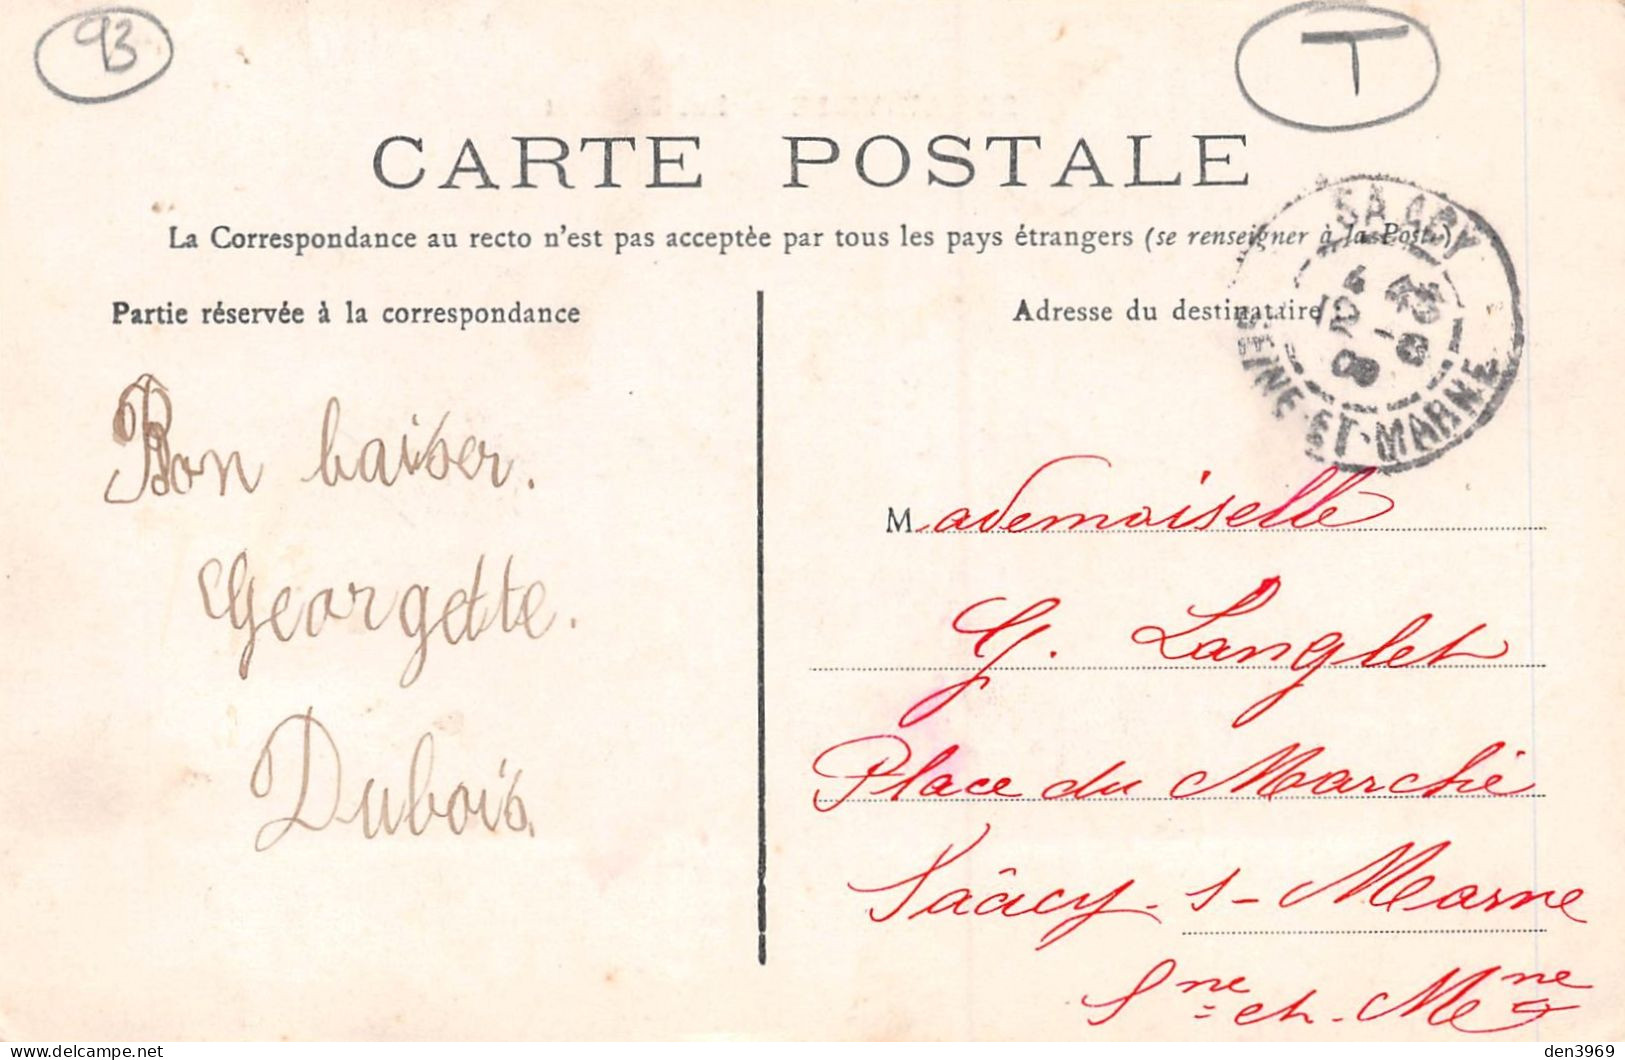 93
T
CARTE POSTALE
La Correspondance au recto n'est pas acceptée par tous les pays étrangers (se renseigner à la Poste)
SAACY
SEINE-ET-MARNE
Partie réservée à la correspondance
Bon baiser.
Georgette.
Dubois.
Adresse du destinataire :
Mademoiselle
G. Langlet
Place du Marché
Saâcy-s-Marne
Sne et Mne
den3969